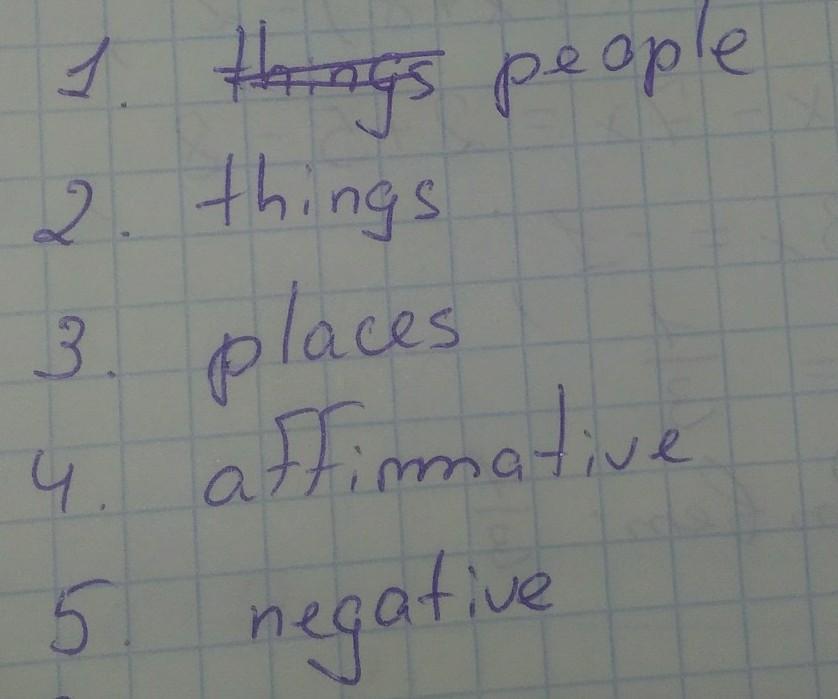 1. things people
2. things
3. places
4. affirmative
5. negative